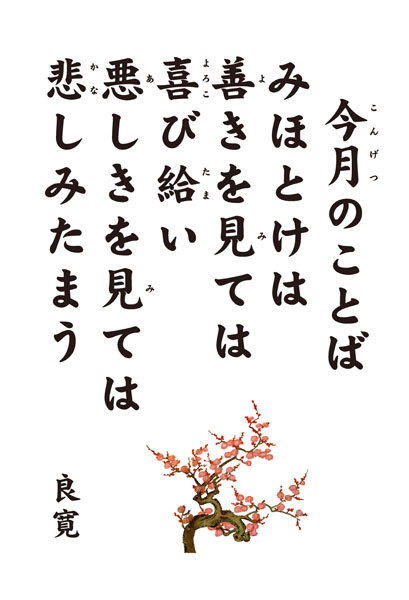 今月のことば
みほとけは
善きを見ては
喜び給い
悪しきを見ては
悲しみたまう
良寛